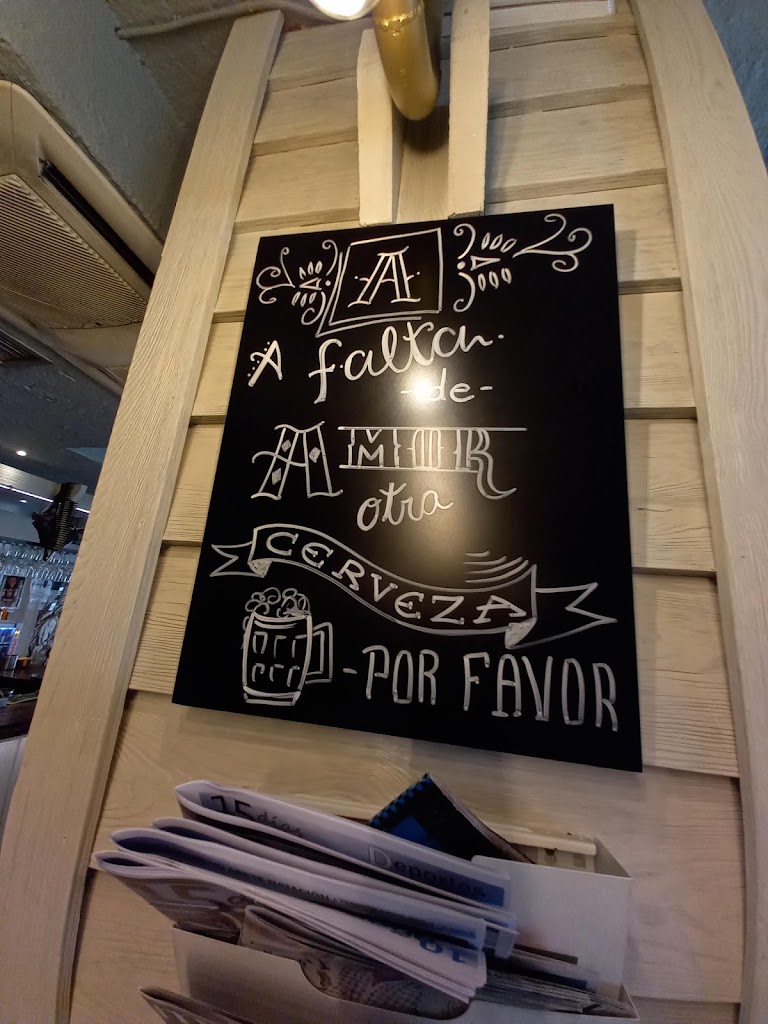 A
A falta
-de-
AMOR
otra
CERVEZA
-POR FAVOR
15 días
Deportes